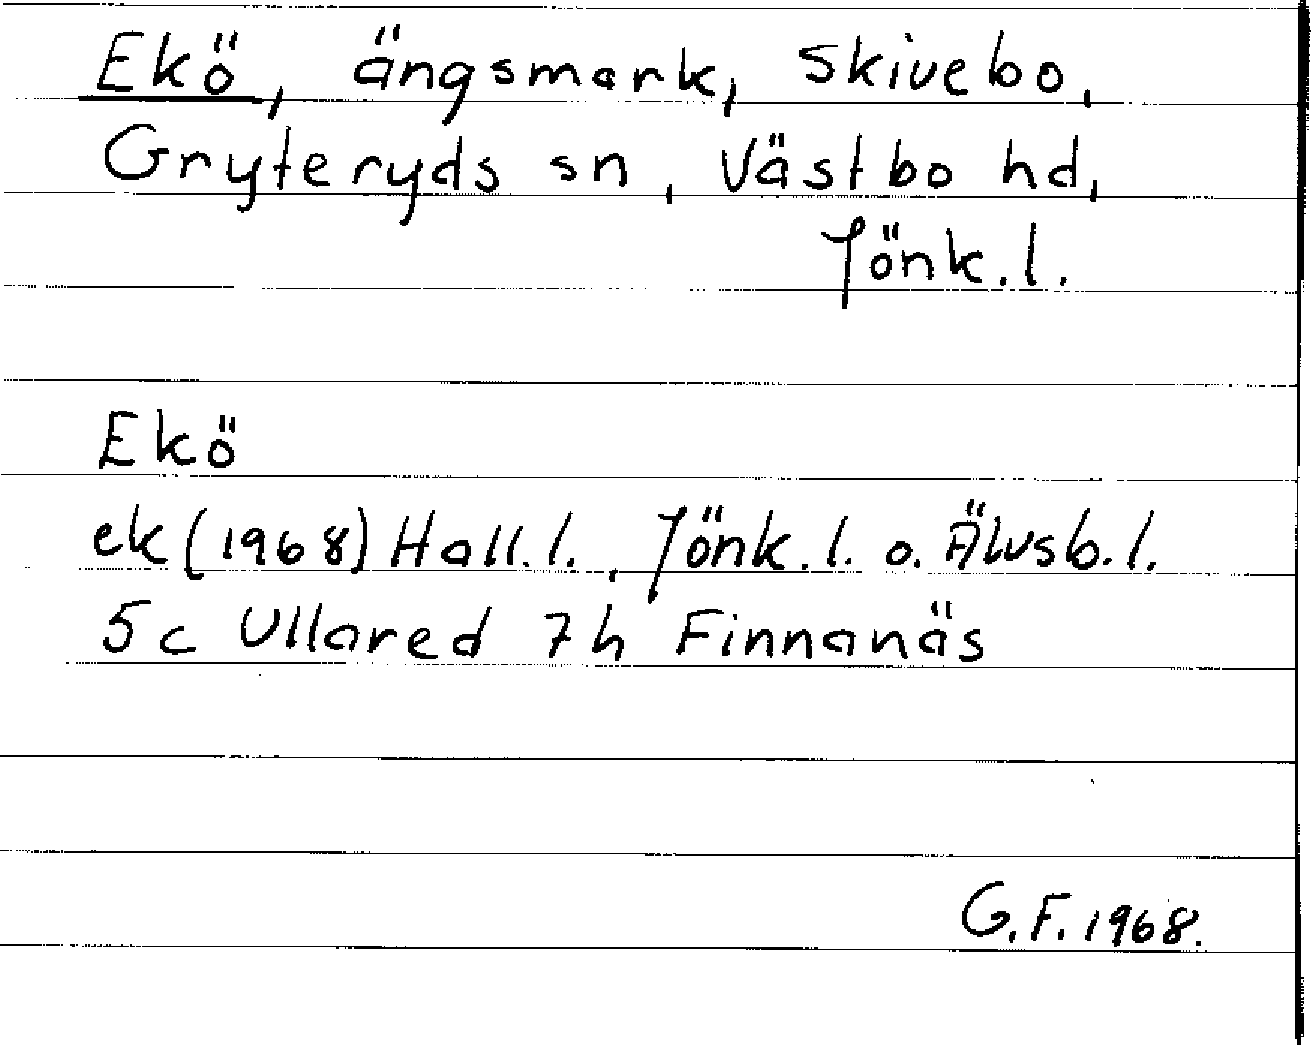 Ekö, ängsmark, Skivebo,
Gryteryds sn, Västbo hd,
Jönk.l.
Ekö
ek (1968) Hall.l., Jönk.l. o. Älvsb.l.
5c Ullared 7h Finnanäs
G.F. 1968.